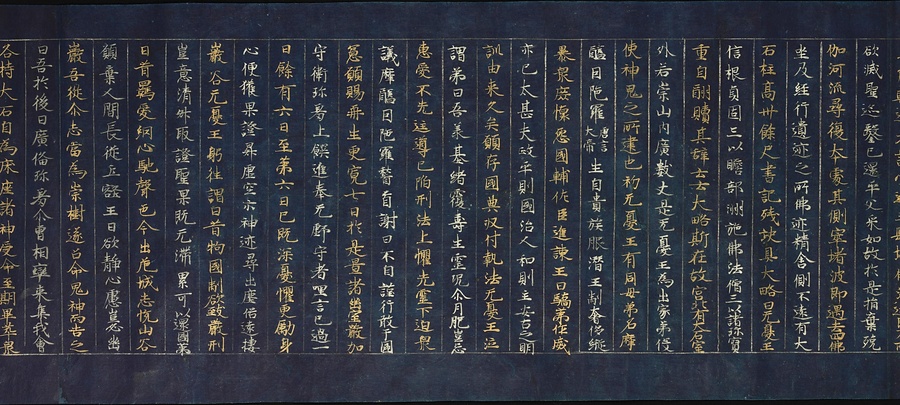 欲滅聖迹鑿已還平文采如故於是捐棄殑
伽河流尋復本處其側窣堵波即過去四佛
坐及經行遺迹之所佛迹精舍側不遠有大
石柱高卅餘尺書記殘缺其大略曰无憂王
信根貞固三以贍部洲施佛法僧三以諸珍寶
重自酬贖其辞云云大略斯在故宮北有大石室
外若崇山內廣數丈是无憂王為出家弟役
使神鬼之所建也初无憂王有同母弟名摩
醯因陀羅唐言大帝生自貴族服僭王制奢侈縱
暴眾庶懷怨國輔作臣進諫王曰驕弟作威
亦已太甚夫政平則國治人和則主安古之明
訓由來久矣願存國典收付執法无憂王泣
謂弟曰吾承基緒覆壽生靈况尒同胞豈忘
惠愛不先匡導已陷刑法上懼先靈下迫眾
議摩醯因陀羅稽首謝曰不自謹行敢干國
憲願賜再生更寬七日於是置諸幽室嚴加
守衛珍羞上饌進奉无虧守者唱言已過一
日餘有六日至第六日已既深憂懼更勵身
心便獲果證昇虛空示神迹尋出塵俗遠棲
巖谷无憂王躬往謂曰昔拘國制欲致嚴刑
豈意清昇取證聖果既无滯累可以還國弟
曰昔羈愛網心馳聲色今出危城志悅山谷
願棄人間長從丘壑王曰欲靜心慮豈必幽
巖吾從尒志當為崇樹遂召命鬼神而告之
曰吾於後日廣備珍羞尒曹相率來集我會
各持大石自為床座諸神受命至期畢萃眾